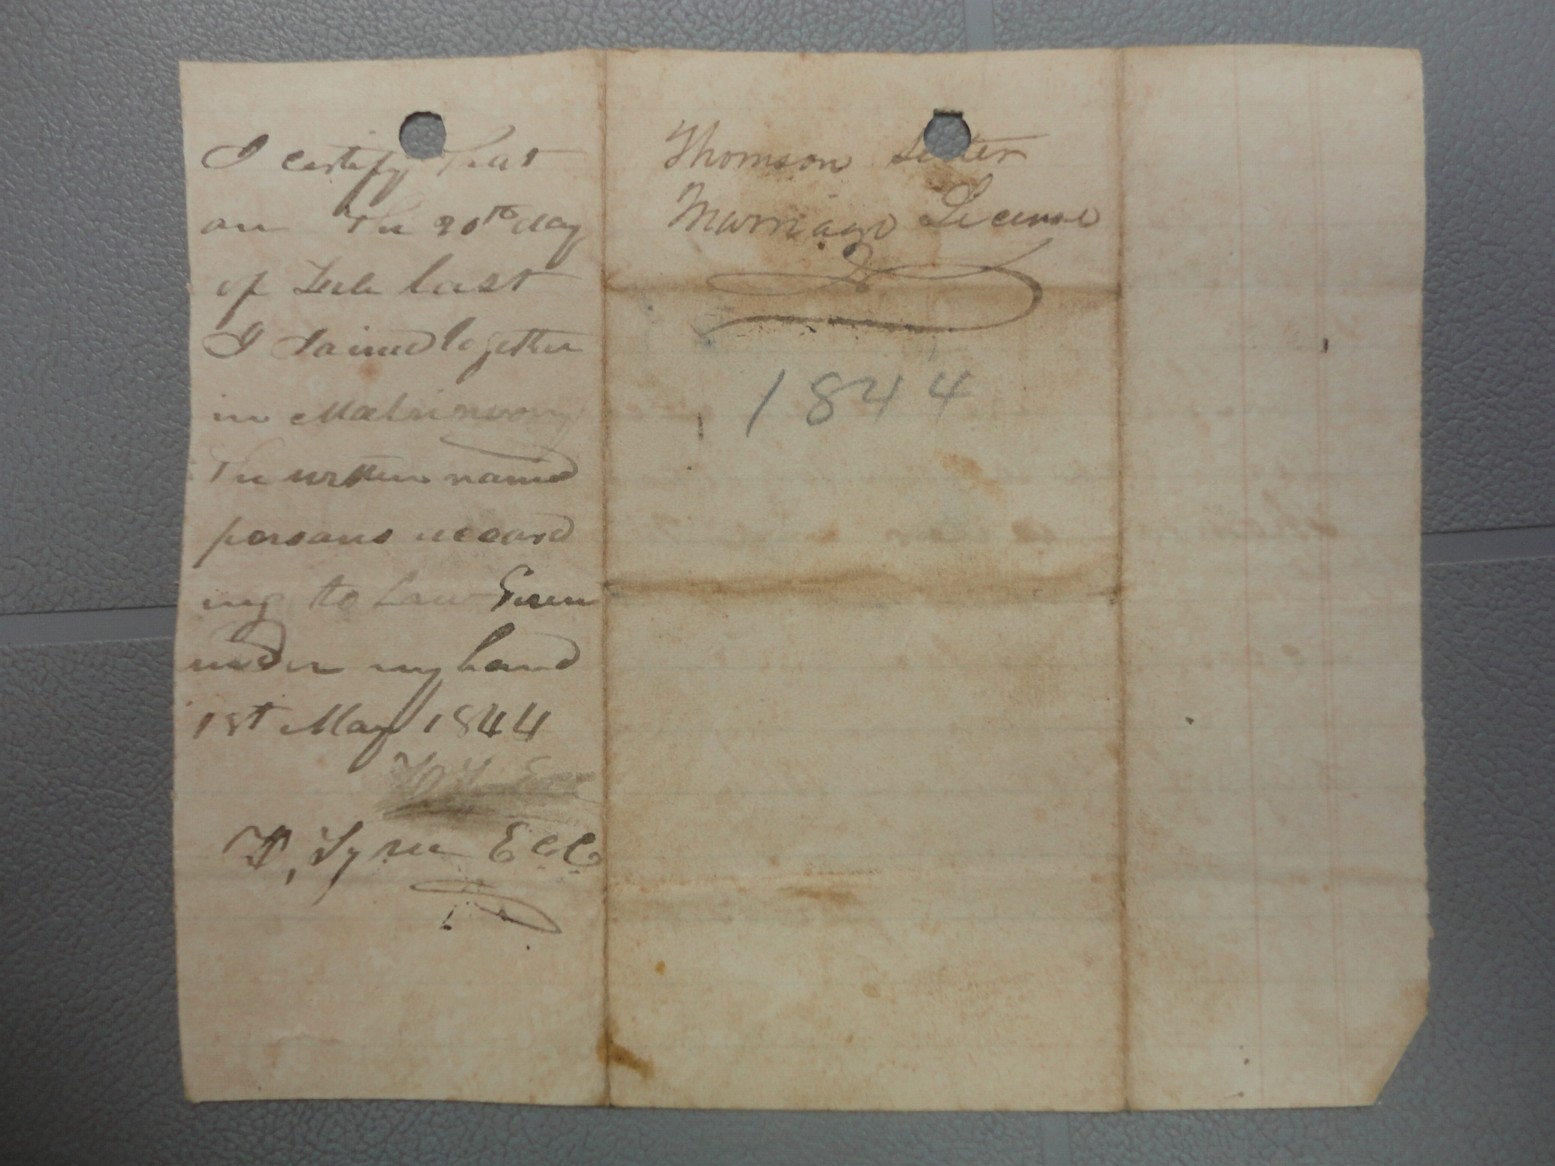 I certify that
on the 20th day
of Feb last
I Joined together
in Matrimony
the written named
persons accord
ing to Law Given
under my hand
1st May 1844
Tyson E.C.C.
Thomson
Marriage License
1844